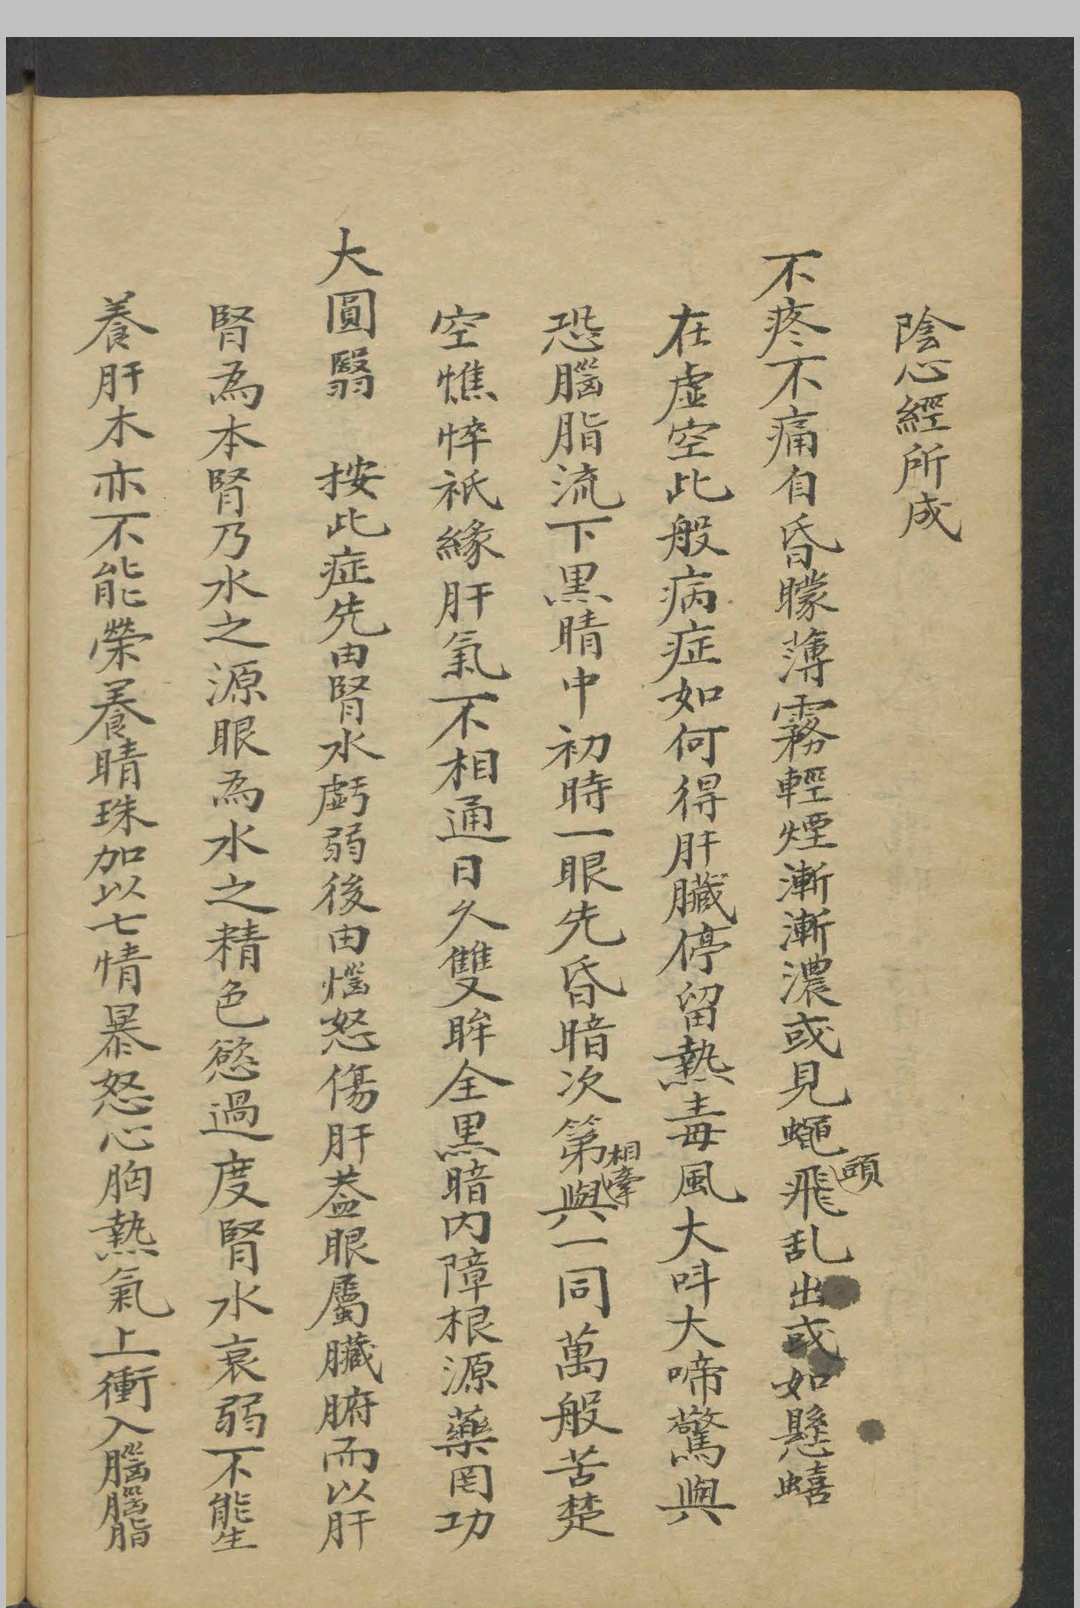 陰心經所成
不疼不痛自昏矇薄霧輕煙漸漸濃或見蠅飛頭乱出或如懸蟢
在虛空此般病症如何得肝臟停留熱毒風大呌大啼驚與
恐腦脂流下黒睛中初時一眼先昏暗次第相牽與一同萬般苦楚
空憔悴祇緣肝氣不相通日久雙眸全黒暗内障根源藥罔功
大圓翳　按此症先由腎水虧弱後由惱怒傷肝葢眼屬臟腑而以肝
腎為本腎乃水之源眼為水之精色慾過度腎水衰弱不能生
養肝木亦不能榮養睛珠加以七情暴怒心胸熱氣上衝入腦腦脂